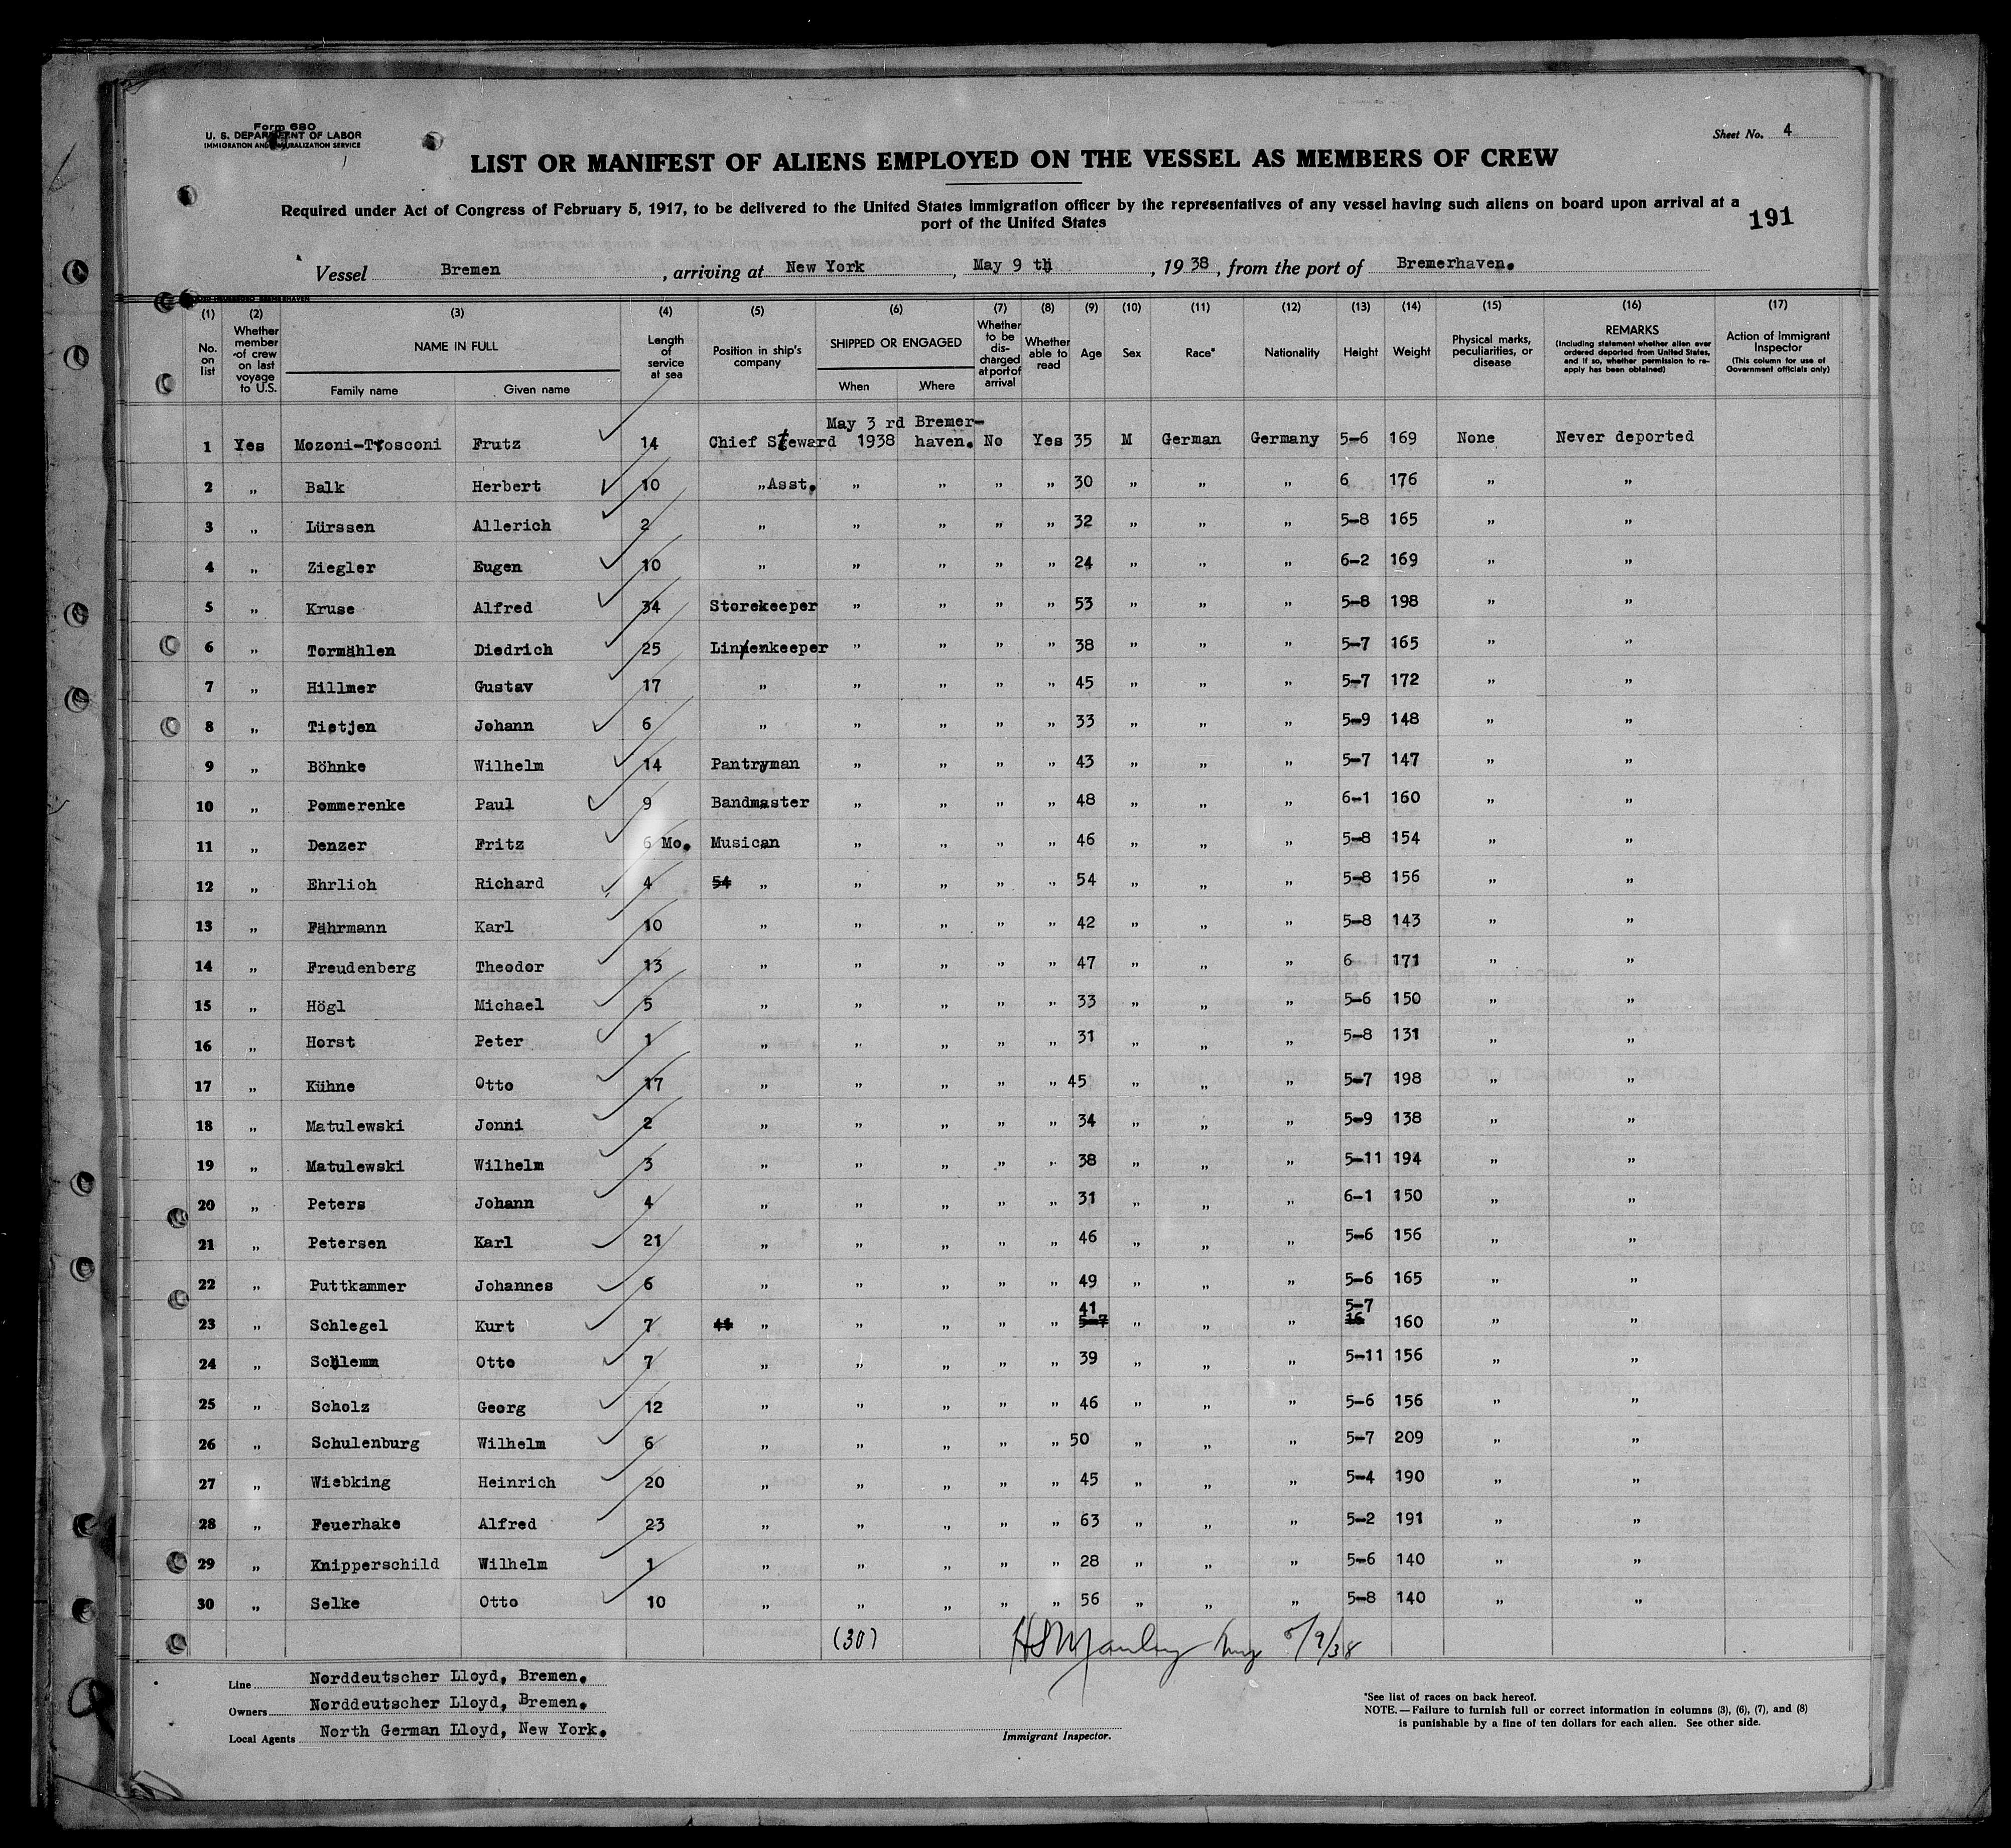 Form 680
U. S. DEPARTMENT OF LABOR
IMMIGRATION AND NATURALIZATION SERVICE
Sheet No. 4
LIST OR MANIFEST OF ALIENS EMPLOYED ON THE VESSEL AS MEMBERS OF CREW
Required under Act of Congress of February 5, 1917, to be delivered to the United States immigration officer by the representatives of any vessel having such aliens on board upon arrival at a
port of the United States
191
Vessel Bremen, arriving at New York, May 9 th, 19 38, from the port of Bremerhaven.
(1) (2) (3) (4) (5) (6) (7) (8) (9) (10) (11) (12) (13) (14) (15) (16) (17)
No. on list Whether member of crew on last voyage to U.S. NAME IN FULL Family name Given name Length of service at sea Position in ship's company SHIPPED OR ENGAGED When Where Whether to be discharged at port of arrival Whether able to read Age Sex Race* Nationality Height Weight Physical marks, peculiarities, or disease REMARKS (Including statement whether alien ever ordered deported from United States, and if so, whether permission to reapply has been obtained) Action of Immigrant Inspector (This column for use of Government officials only)
1 Yes Mozoni-Trosconi Frutz 14 Chief Steward May 3 rd 1938 Bremer-haven. No Yes 35 M German Germany 5-6 169 None Never deported
2 „ Balk Herbert 10 „Asst. „ „ „ „ 30 „ „ „ 6 176 „ „
3 „ Lürssen Allerich 2 „ „ „ „ „ 32 „ „ „ 5-8 165 „ „
4 „ Ziegler Eugen 10 „ „ „ „ „ 24 „ „ „ 6-2 169 „ „
5 „ Kruse Alfred 34 Storekeeper „ „ „ „ 53 „ „ „ 5-8 198 „ „
6 „ Tormählen Diedrich 25 Linnenkeeper „ „ „ „ 38 „ „ „ 5-7 165 „ „
7 „ Hillmer Gustav 17 „ „ „ „ „ 45 „ „ „ 5-7 172 „ „
8 „ Tietjen Johann 6 „ „ „ „ „ 33 „ „ „ 5-9 148 „ „
9 „ Böhnke Wilhelm 14 Pantryman „ „ „ „ 43 „ „ „ 5-7 147 „ „
10 „ Pommerenke Paul 9 Bandmaster „ „ „ „ 48 „ „ „ 6-1 160 „ „
11 „ Denzer Fritz 6 Mo. Musican „ „ „ „ 46 „ „ „ 5-8 154 „ „
12 „ Ehrlich Richard 4 54 „ „ „ „ „ 54 „ „ „ 5-8 156 „ „
13 „ Fährmann Karl 10 „ „ „ „ „ 42 „ „ „ 5-8 143 „ „
14 „ Freudenberg Theodor 13 „ „ „ „ „ 47 „ „ „ 6 171 „ „
15 „ Högl Michael 5 „ „ „ „ „ 33 „ „ „ 5-6 150 „ „
16 „ Horst Peter 1 „ „ „ „ „ 31 „ „ „ 5-8 131 „ „
17 „ Kühne Otto 17 „ „ „ „ „ 45 „ „ „ 5-7 198 „ „
18 „ Matulewski Jonni 2 „ „ „ „ „ 34 „ „ „ 5-9 138 „ „
19 „ Matulewski Wilhelm 3 „ „ „ „ „ 38 „ „ „ 5-11 194 „ „
20 „ Peters Johann 4 „ „ „ „ „ 31 „ „ „ 6-1 150 „ „
21 „ Petersen Karl 21 „ „ „ „ „ 46 „ „ „ 5-6 156 „ „
22 „ Puttkammer Johannes 6 „ „ „ „ „ 49 „ „ „ 5-6 165 „ „
23 „ Schlegel Kurt 7 „ „ „ „ „ 41 5-7 „ „ „ 5-7 160 „ „
24 „ Schlemm Otto 7 „ „ „ „ „ 39 „ „ „ 5-11 156 „ „
25 „ Scholz Georg 12 „ „ „ „ „ 46 „ „ „ 5-6 156 „ „
26 „ Schulenburg Wilhelm 6 „ „ „ „ „ 50 „ „ „ 5-7 209 „ „
27 „ Wiebking Heinrich 20 „ „ „ „ „ 45 „ „ „ 5-4 190 „ „
28 „ Feuerhake Alfred 23 „ „ „ „ „ 63 „ „ „ 5-2 191 „ „
29 „ Knipperschild Wilhelm 1 „ „ „ „ „ 28 „ „ „ 5-6 140 „ „
30 „ Selke Otto 10 „ „ „ „ „ 56 „ „ „ 5-8 140 „ „
(30) 5/9/38
Line Norddeutscher Lloyd, Bremen.
Owners Norddeutscher Lloyd, Bremen.
Local Agents North German Lloyd, New York.
Immigrant Inspector.
*See list of races on back hereof.
NOTE.—Failure to furnish full or correct information in columns (3), (6), (7), and (8)
is punishable by a fine of ten dollars for each alien. See other side.